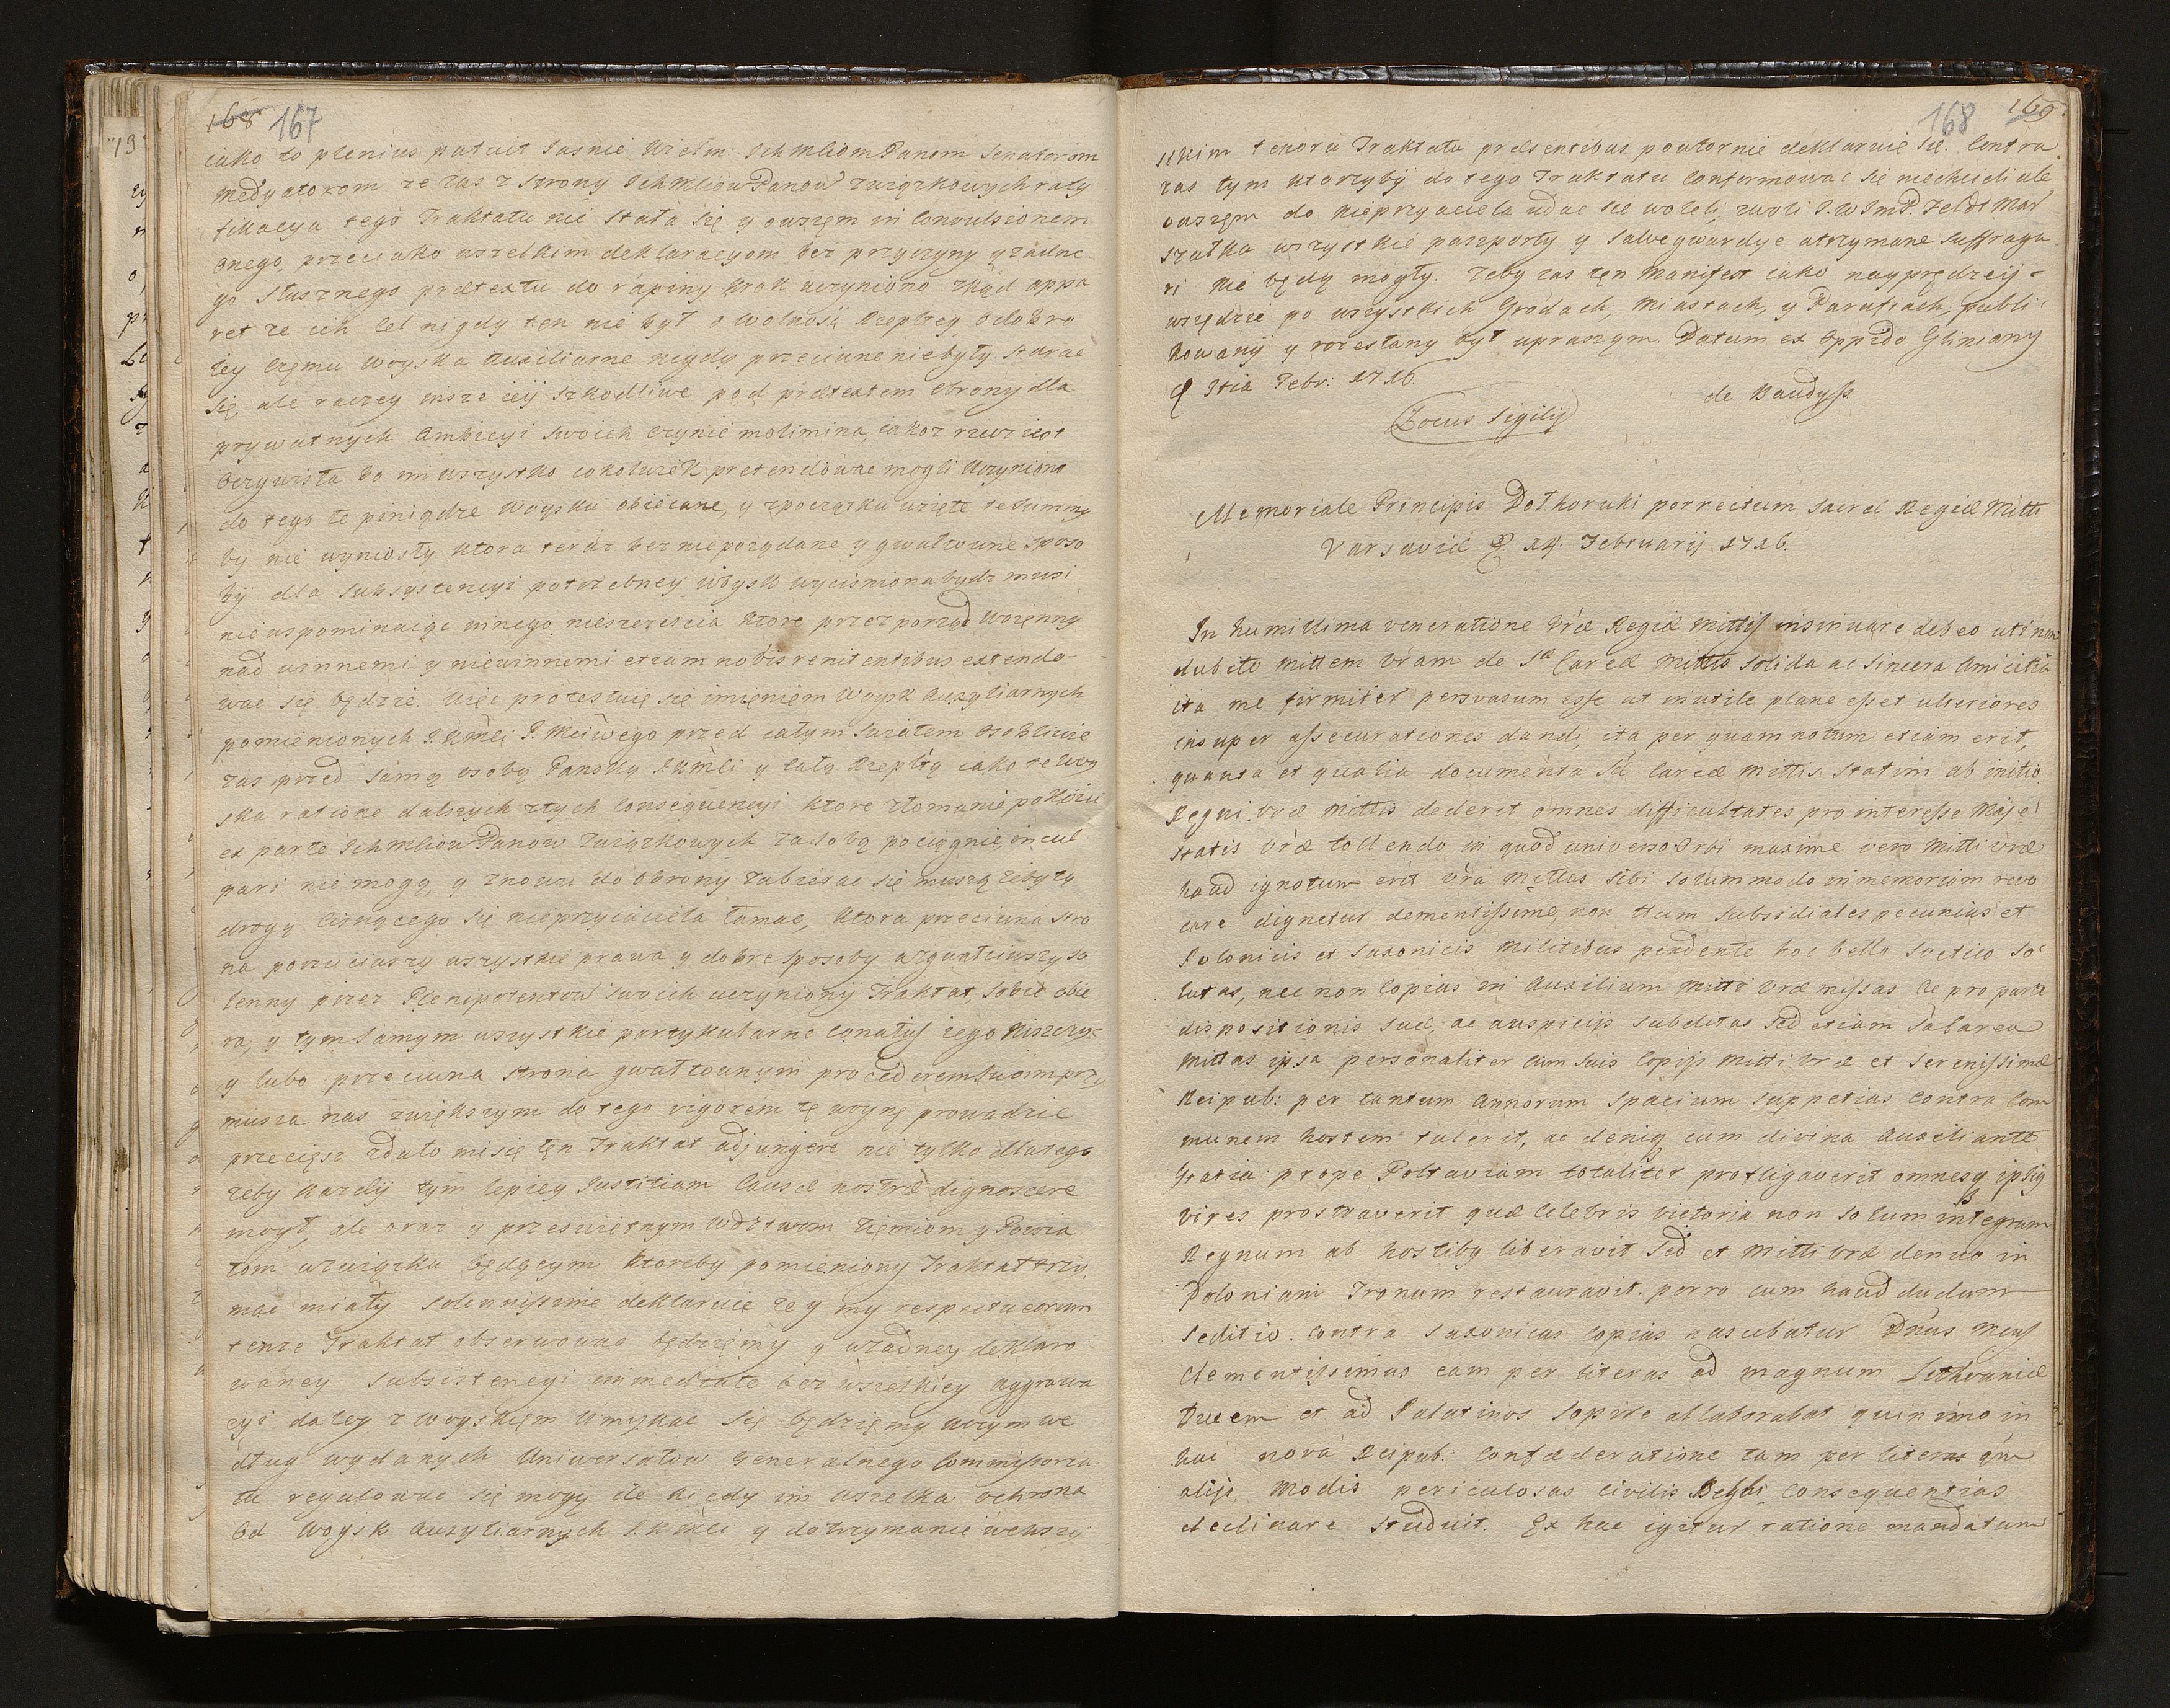 168 167
iako to plenius patuit Jasnie Wielm. Ichmściom Panom Senatorom
Medyatorom ze zas z Strony Ichmściow Panow związkowych raty
fikacya tego Traktatu nie Stała się y owszęm in Convulsionem
onego, przeciwko wszelkim deklaracyom bez przyczyny y zadne
go Słusznego prætextu do rapiny krok uczyniono zkąd appa
ret ze ich Cel nigdy tęn nie był o wolnosci Rzepltey odobro
ley Czemu Woyska Auxiliarne nigdy przeciwne niebyły Starac
się, ale raczey insze ieij Szkodliwe pod prætextem obrony dla
prywatnych Ambicyi Swoich Czynic molimina, iakoz rzecz iest
oczywista bo im wszystko cokolwiek pretendowac mogli Uczyniono
do tego te piniądze Woysku obiecane, y zpoczątku wzięte te Summy
by nie wyniosły ktora teraz bez niepoządane y gwałtowne Sposo
bÿ dla Subsystencyi potrzebney Woysk wycisniona bydz musi
nie wspominaiąc innego nieszczescia ktore przez porząd Woięnny
nad winnemi y niewinnemi etiam nobis renitentibus extendo-
wac się będzie. Więc protestuię się imięnięm Woysk Auxyliarnych
pomienionych J.Kmći P. Mćiwego przed całym Swiatem osobliwie
zas przed Samą osobą Panską J.Kmći y całą Rzepltą iako te Woy
ska ratione dalszych złych Consequencyi ktore złomanie pokoiu
ex parte Ichmściow Panow Związkowych za Sobą pociągnie, incul
pari nie mogą, y znowu do obrony zabierac się muszą zeby tę
drogę Cisnącego się nieprzyiaciela łamac, ktora przeciwna stro
na porzuciwszy wszystkie prawa y dobre Sposoby a zgwałciwszy So
lenny przez Plenipotentow Swoich uczynionÿ Traktat, Sobie obie
ra, y tym samym wszystkie partykularne Conatus iego Niszczy
y lubo przeciwna strona gwałtownym procederem Swoim przy
musza nas zwiększym do tego vigorem tę woynę prowadzic
przecięsz zdało mi się tęn Traktat adjungere nie tylko dlatego
zeby kazdij tym lepiey Justitiam Causæ nostræ dignoscere
mogł, ale oraz y przeswiętnym Wdztwom Ziemiom y Powia
tom w związku będącym ktoreby pomieniony Traktat trzy
mac miały solennissime deklaruię ze y my respectu eorum
tenze Traktat obserwowac będzięmy y wzadney deklaro
waney Subsistencyi immediate bez wszelkiey aggrawa
cyi daley z woyskięm Umykac się będzięmy wczym we
dług wydanych Uniwersałow Generalnego Commissoria
tu regulowac się mogą ile kiedy im wszelka ochrona
od Woysk Auxyliarnych J.Kmći y dotrzymanie wewszy
168 169
stkim tenoru Traktatu præsentibus powtornie deklaruię Się. Contra
zas tym ktorzybÿ do tego Traktatu Conformowac się niechcieli ale
owszęm do nieprzyaciela udac sie woleli, zwoli J.W ImP. Feldt Mar
szałka wszystkie paszporty y Salvegwardye otrzymane Suffraga
ri nie będą mogły. Zeby zas tęn Manifest iako nayprędzeij
wszędzie po wszystkich Grodach, Miastach, y Parafiach, publi
kowanÿ y rozesłany był upraszam. Datum ex Oppido Gliniany
d 3tia Febr: 1716.
de Baudyss
Locus Sigilij
Memoriale Principis Dolhoruki porrectum Sacræ Regiæ Mitti
Varsaviæ D 24. Februarij 1716.
In humillima veneratione Vræ Regiæ Mittis insinuare debeo uti non
dubito Mittem Vram de Sæ Careæ Mittis solida ac sincera Amicitia
ita me firmiter persvasum esse ut inutile plane esset ulteriores
insuper assecurationes dandi, ita per quam notum etiam erit,
quanta et qualia documenta Sæ Careæ Mittis statim ab initio
Regni vræ Mittis dederit omnes difficultates pro interesse Maje
statis Vræ tollendo in quod universo Orbi maxime vero Mitti vræ
haud ignotum erit Vra Mittas Sibi Solummodo in memoriam revo
care dignetur clementissime, non tum subsidiales pecunias et
Polonicis et Saxonicis Militibus pendente hoc bello Svetico So
lutas, nec non Copias in Auxilium Mitti Vræ missas ac pro parte
dispositionis suæ, ac auspicijs subditas Sed etiam Sa Carea
Mittas ipsa personaliter cum Suis Copijs Mitti Vræ et Serenissimæ
Reipub: per tantum Annorum Spacium Suppetias contra Com
munem hostem tulerit, ac deniq cum divina Auxiliante
Gratia prope Poltaviam totaliter profligaverit omnesq ipsig
vires prostraverit quæ Celebris victoria non solum integrum
Regnum ab hostibg liberavit Sed et Mitti Vræ denuo in
Poloniam Tronum restauravit. porro cum haud dudum
Seditio. Contra Saxonicas Copias nascebatur Dnus Meus
Clementissimus eam per literas ad magnum Lithvaniæ
Ducem et ad Palatinos Sopire allaborabat quin imo in
hac nova Reipub: Confæderatione tam per literas qm
alijs Modis periculosas Civilis Belli Consequentias
declinare studuit. Ex hac igitur ratione mandatum